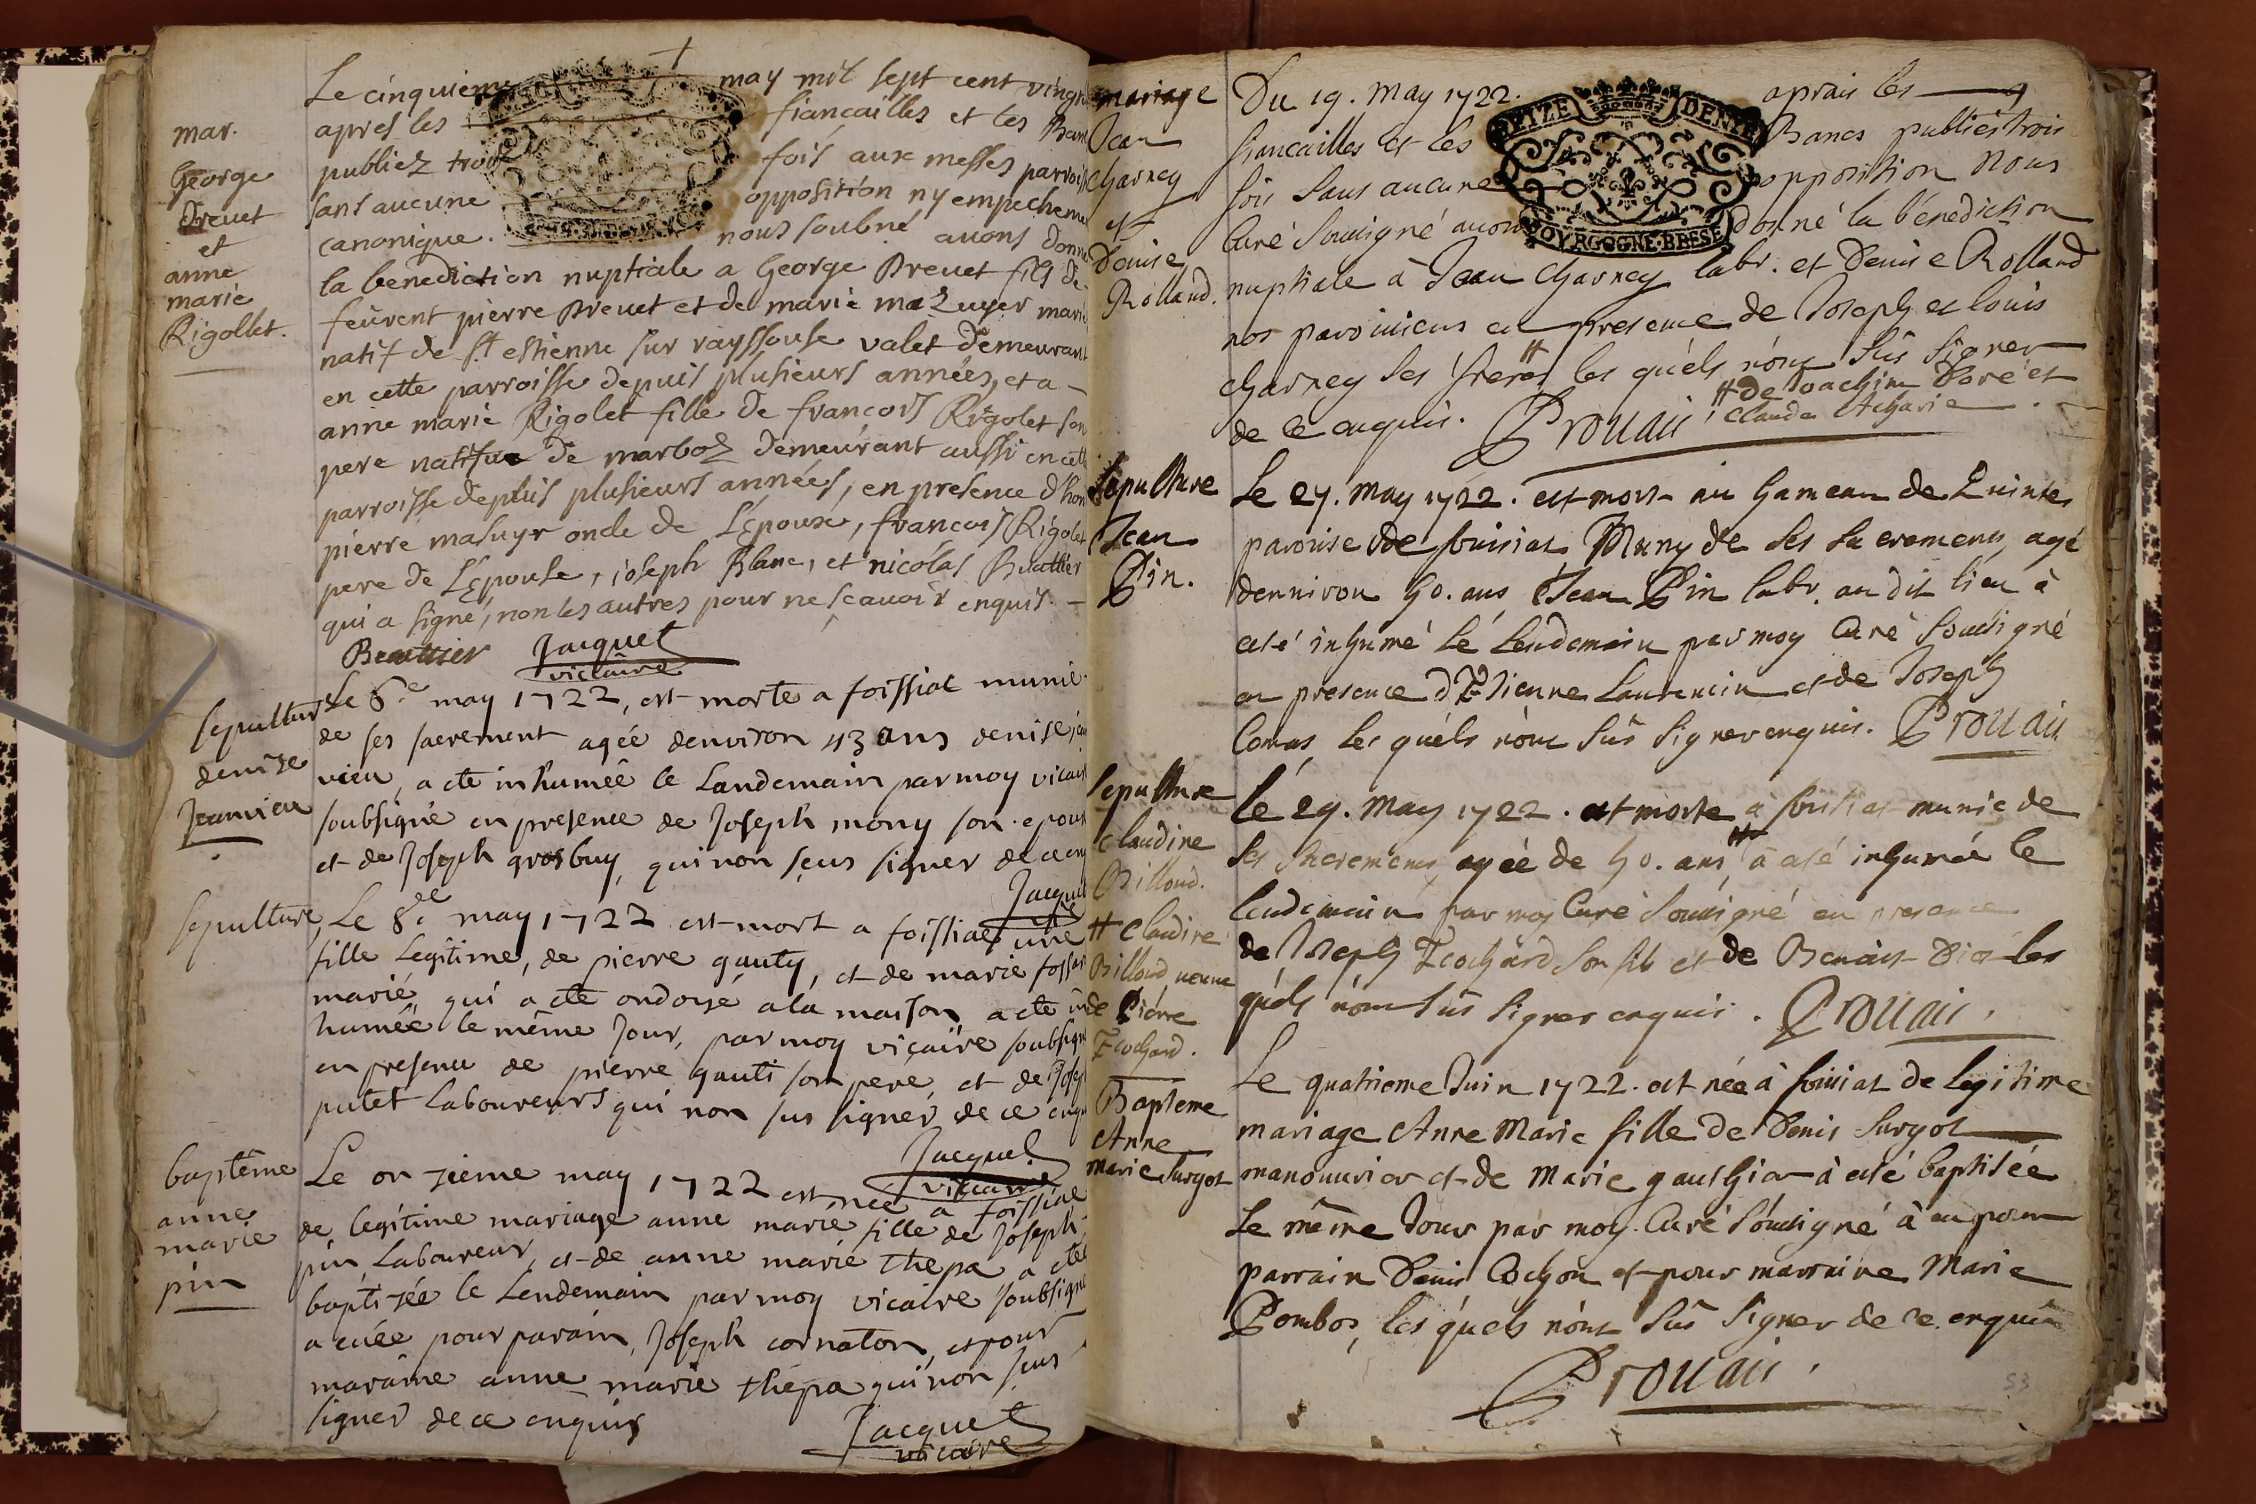 mar.
George
Brevet
et
anne
marie
Rigollet.
Le cinquieme may mil sept cent vingt
apres les fiancailles et les Ban
publiez trois fois aux messes parrois
sans aucune opposition ny empecheme
canonique. nous soubné avons donné
la benediction nuptiale a George Brevet fils de
feürent pierre Brevet et de marie mazuyer marié
natif de st estienne sur rayssouse valet demeurant
en cette parroisse depuis plusieurs années, et a
anne marie Rigolet fille de francois Rigolet son
pere natifve de marboz demeurant aussi en cette
parroisse depuis plusieurs années, en presence d'hon
pierre masuyr oncle de L'époux, francois Rigolet
pere de L'épouse, ioseph Blanc, et nicolas Beauttier
qui a signé, non les autres pour ne sçavoir enquis.
Beauttier Jacquet
viccaire
sepulture
denize
Jeanvieu
Le 6e may 1722, est morte a foissiat munie
de ses sacrement agée denviron 43 ans denise jan
vieu, a ete inhumée le Landemain par moy vicair
soubsigné en presence de Joseph mony son epoux
et de Joseph grosbuy, qui non sçus signer de ce enq
Jacquet
sepulture
Le 8e may 1722 est mort a foissiat une
fille Legitime, de pierre gauty, et de marie fossar
marié, qui a ete ondoyé a la maison a ete in
humée le même Jour, par moy viçaire soubsign
en presence de pierre gauti son pere, et de Josep
putet Laboureurs qui non sus signer de ce enqu
Jacquet
viccaire
baptême
anne
marie
pin
Le onzieme may 1722 est née a foissiat
de legitime mariage anne marie fille de Joseph
pin Laboureur, et de anne marie thepa a eté
baptizée le Lendemain par moy vicaire soubsigné
a euée pour parain, Joseph cornaton, et pour
maraine anne marie thepa qui non sçus
signer de ce enquis
Jacquet
vicaire
mariage
Jean
Charney
et
Denise
Rolland.
Du 19. May 1722. aprais les
fiancailles et les Bancs publiés trois
fois sans aucune opposition Nous
Curé Soussigné avons donné la bénediction
SEIZE DENIE
BOVRGOGNE·BRESE
nuptiale à Jean Charney labr. et Denise Rolland
nos paroissiens en presence de Joseph et louis
charney ses freres # les quéls n'ónt Sûs Signer
# de Joachim Boré et
de ce enquis. Prouais Claude Acharie
Sepulture
Jean
Pin.
Le 27. May 1722. est mort au hameau de
paroisse de foissiat Muny de ses Sacremens, agé
denviron 50. ans Jean Pin labr. au dit lieu à
esté inhumé le Lendemain par moy Curé Soussigné
en presence d'Etienne Laurencin et de Joseph
Comas les quéls n'ónt Sûs Signer enquis. Prouais
Sepulture
Claudine
Billoud.
# Claudine
Billoud veuve
de Piérre
Ecochard.
Le 29. May 1722. est morte à foissiat munie de
ses Sacremens, agée de 50. ans # à esté inhumée le
lendemain par moy Curé Soussigné en presence
de Joseph Ecochard son fils et de Benoist Dier les
quéls n'ónt Sûs Signer enquis. Prouais.
Bapteme
Anne
marie Surgot
Le quatrieme Juin 1722. est née à foissiat de legitime
mariage Anne Marie fille de Denis Surgot
manouvrier et de Marie gauthier à esté baptisée
le même Jour par moy Curé Soussigné à eu pour
parrain Denis Cochon et pour marraine Marie
Pombos, les quéls n'ónt Sûs Signer de ce enquis
Prouais.
53